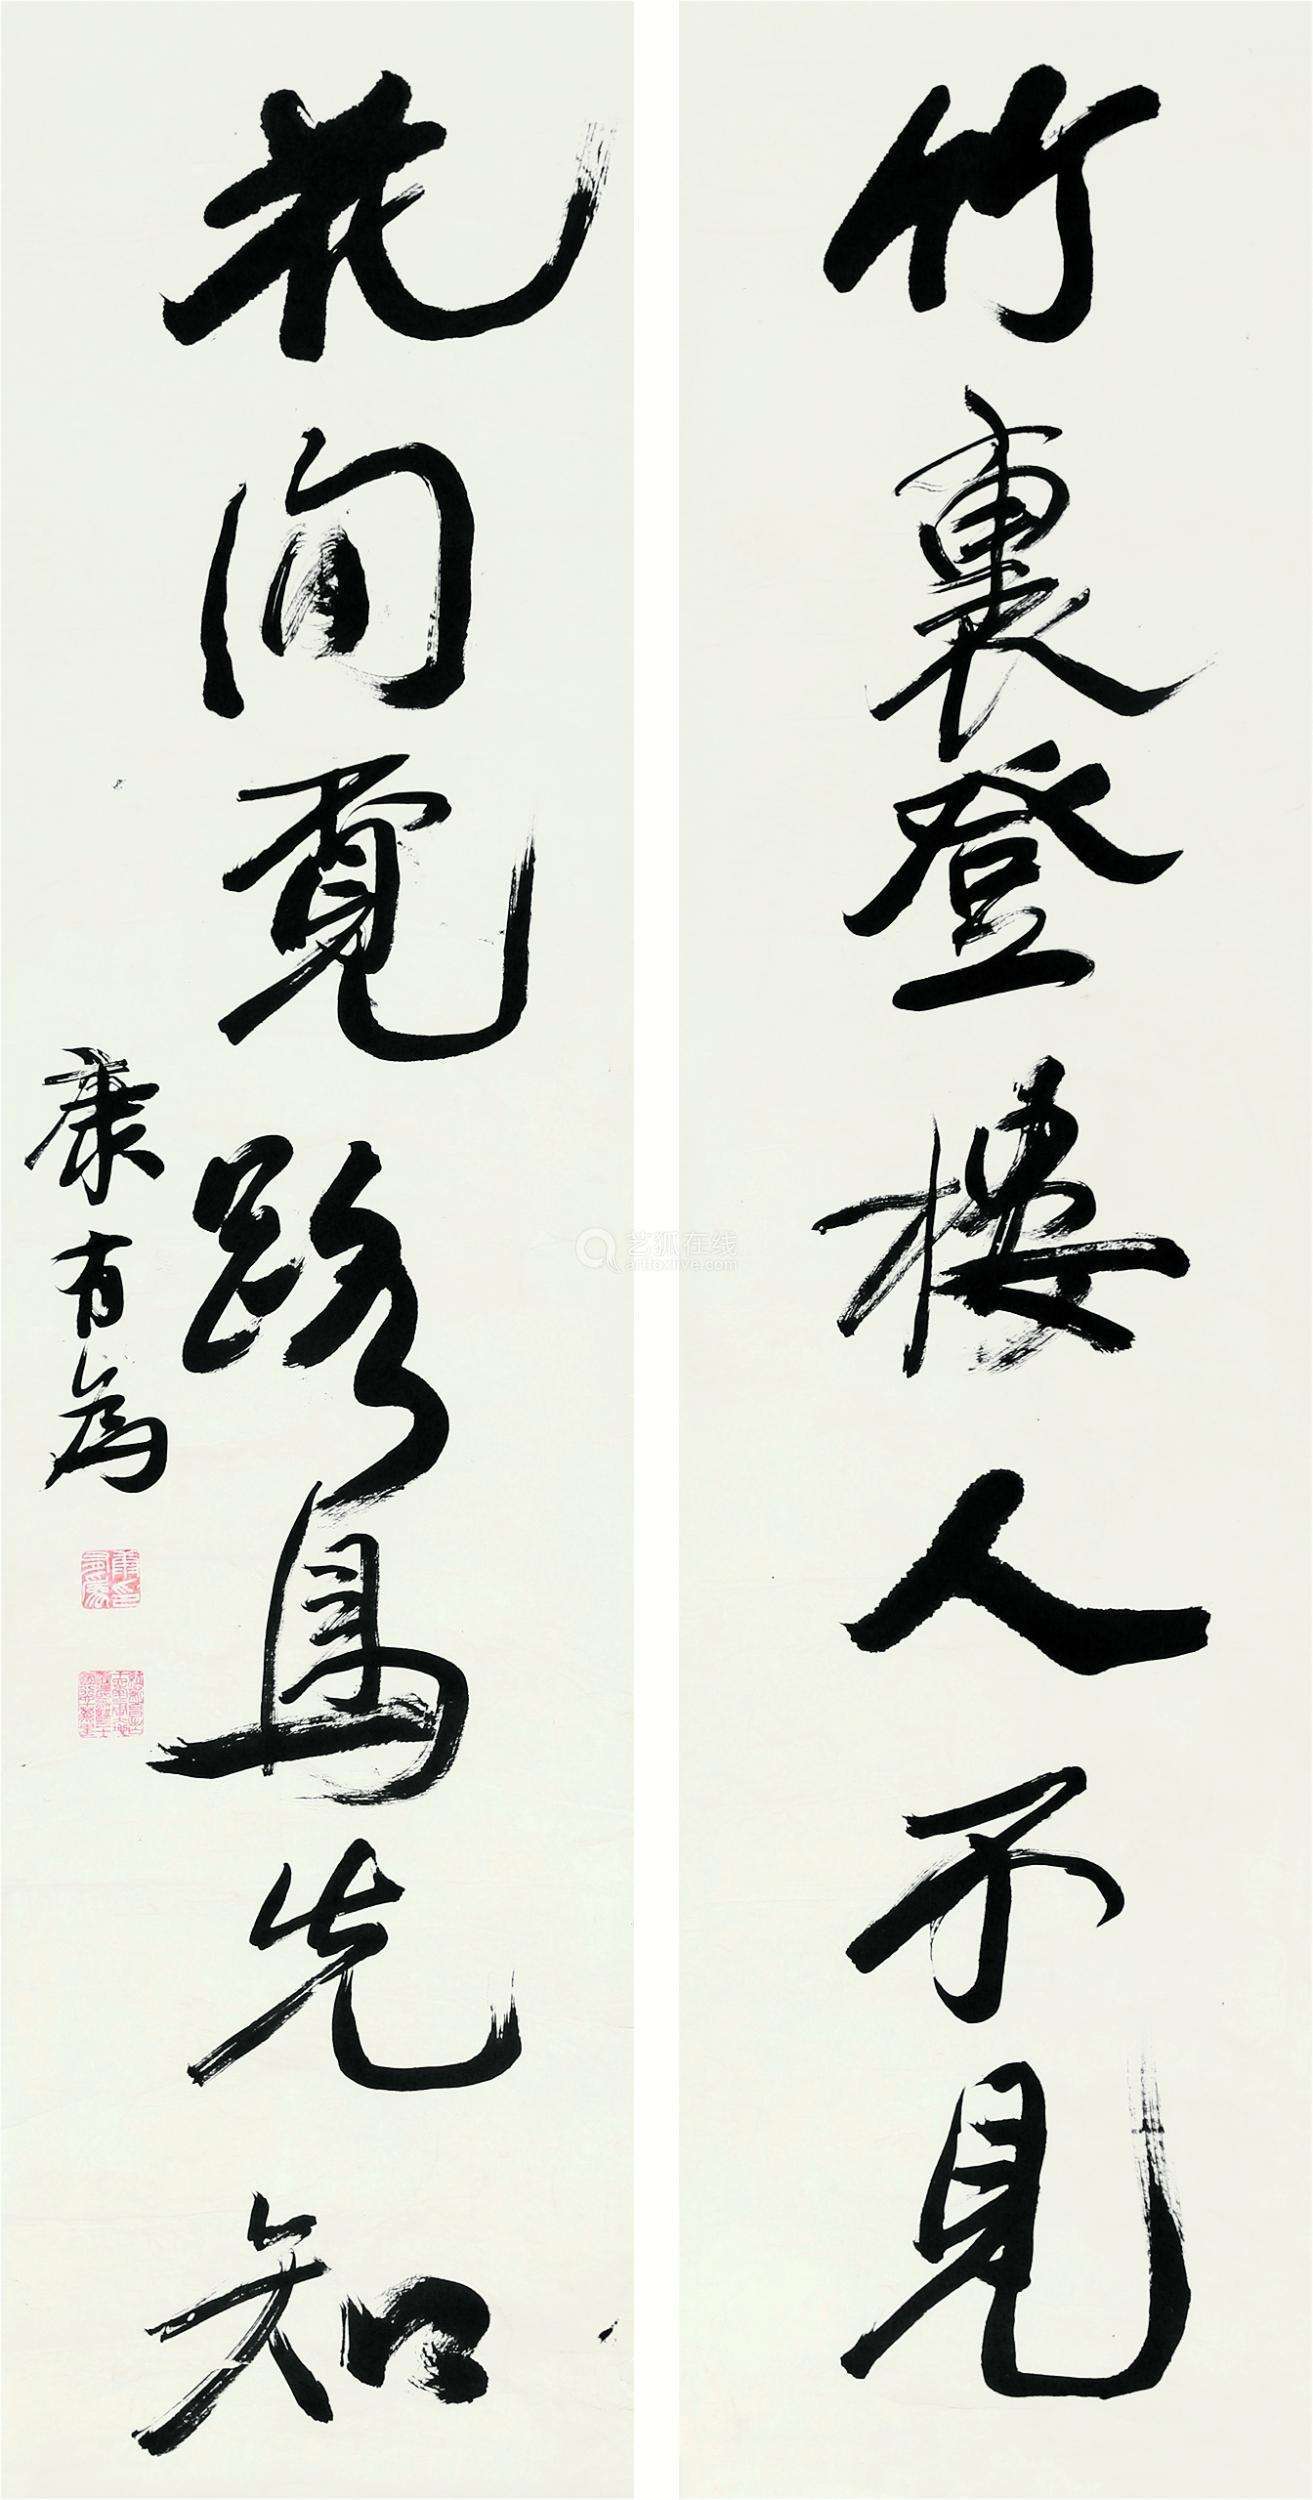 竹裏登樓人不見
花間覓路鳥先知
康有為
艺狐在线
artfoxlive.com